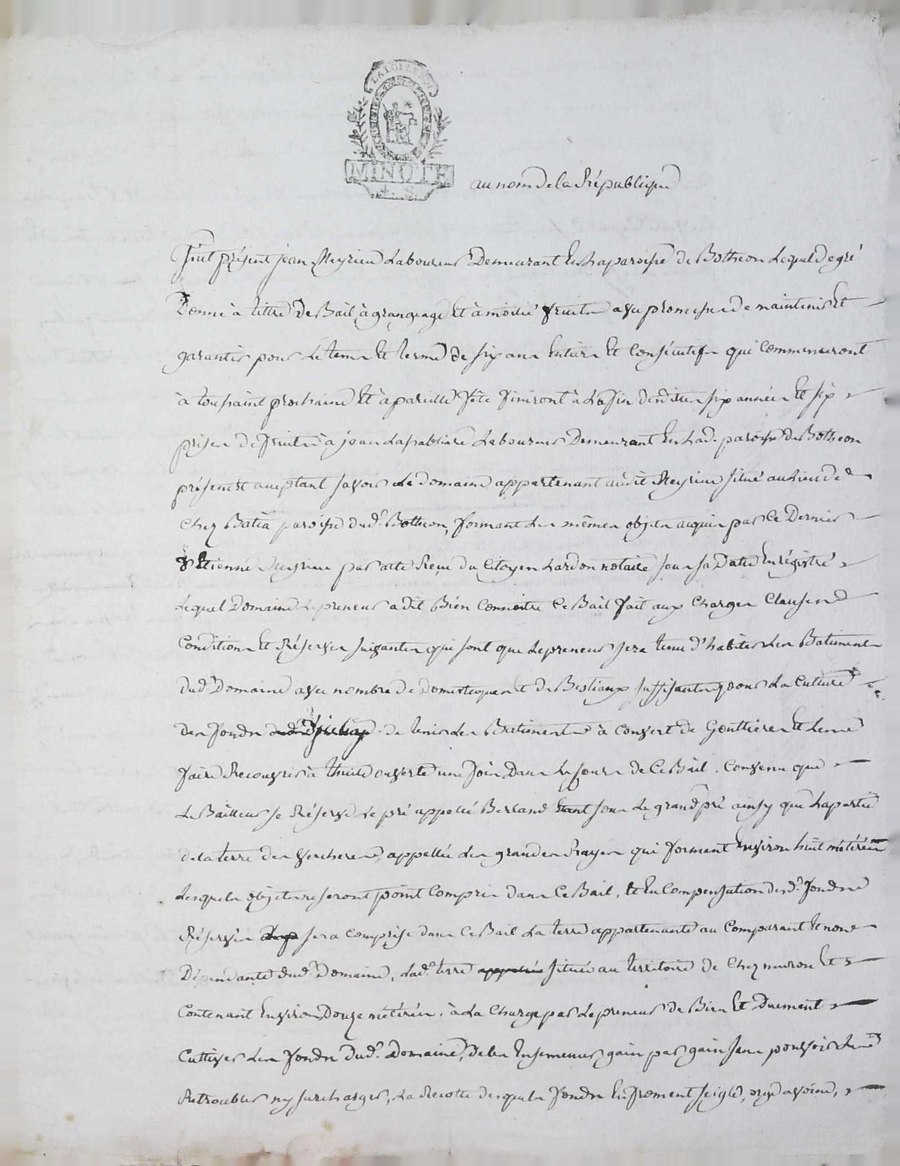 LA LOI LE ROI
MINUTE
4. S.
au nom de la République
Fut présent jean Meyrieu Laboureur Demeurant En La paroisse de Botheon Lequel de gré
Donne à titre de Bail, à grangeage Et à moitié fruits avec promesse de maintenir Et
garantir pour Le tems Et terme de six ans Entiers Et Consécutifs qui Commenceront
à toussaint prochaine Et à pareille fête finiront à La fin desdites six années Et six
prises de fruits à jean Lapabliare Laboureur Demeurant En Lad. paroisse de Botheon
présent Et acceptant savoir Le domaine appartenant audit Meyrieu situé au Lieu de
Chez Batia paroisse dud. Botheon, formant Les mêmes objets acquis par Ce Dernier
Etienne Meyrieu par acte Reçu du Citoyen Lardon notaire sous sa Date Enrégistré
Lequel Domaine Le preneur a dit Bien Connoitre Ce Bail fait aux Charges Clauses
Conditions Et Réserves suivantes qui sont que Le preneur sera tenu d'habiter Les Batiments
dud. Domaine avec nombre de domestiques Et de Bestiaux suffisants pour La Culture
des fonds de tenir Les Batiments à Couvert de Gouttieres Et Les
faire Recouvrir à thuile ouverte une fois Dans Le Cours de Ce Bail. Convenu que
Le Bailleur se Réserve Le pré appellé Berland Etant sous Le grand pré ainsy que La partie
de la terre des Vercheres appellée Les grandes Rayes qui forment Environ huit métérées
Lesquels objets ne seront point Compris dans Ce Bail, Et En Compensation desd. fonds
Réservés sera Comprise dans Ce Bail La terre appartenante au Comparant Et non
Dépendante dud. Domaine, Lad. terre située au territoire de Chez muron Et
Contenant Environ Douze métérées. à La Charge par Le preneur de Bien Et Duement
Cultiver Les fonds dud. Domaine, de les Ensemencer gain par gain sans pouvoir Les
Retroubler ny surcharger, La Récolte desquels fonds En froment seigle, orge avoine,